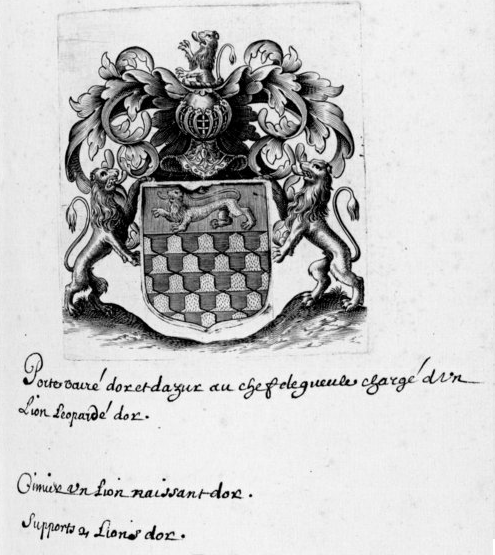 Porte vairé dor et dazur au chef de gueule chargé dVn
Lion Leopardé dor.
Cimier Vn Lion naissant dor.
Supports 2 Lions dor.